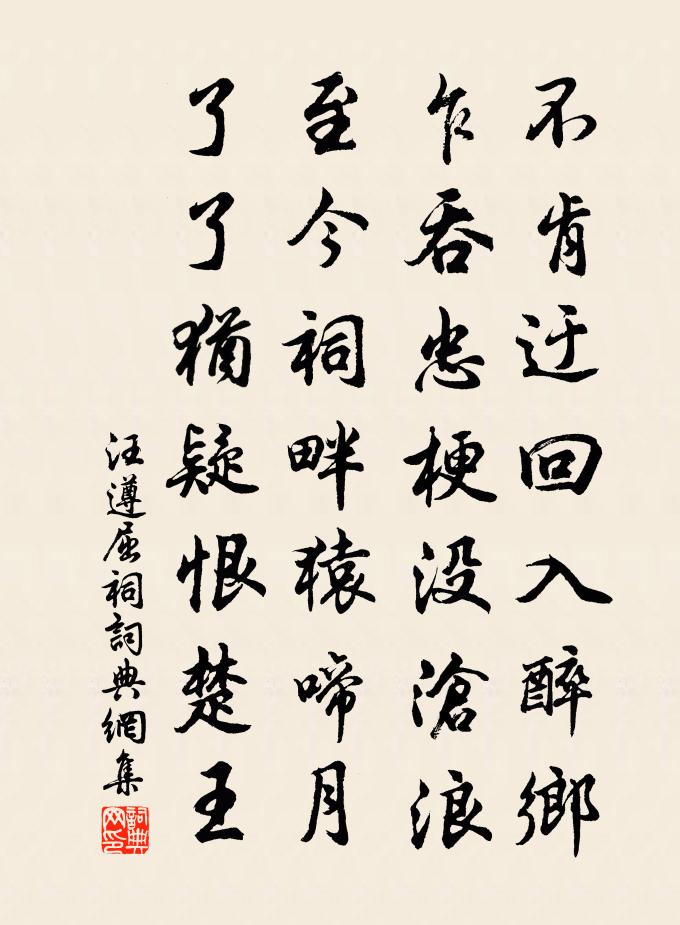 不肯迂回入醉鄉
乍吞忠梗没滄浪
至今祠畔猿啼月
了了猶疑恨楚王
汪遵屈祠詞典網集
詞典网印